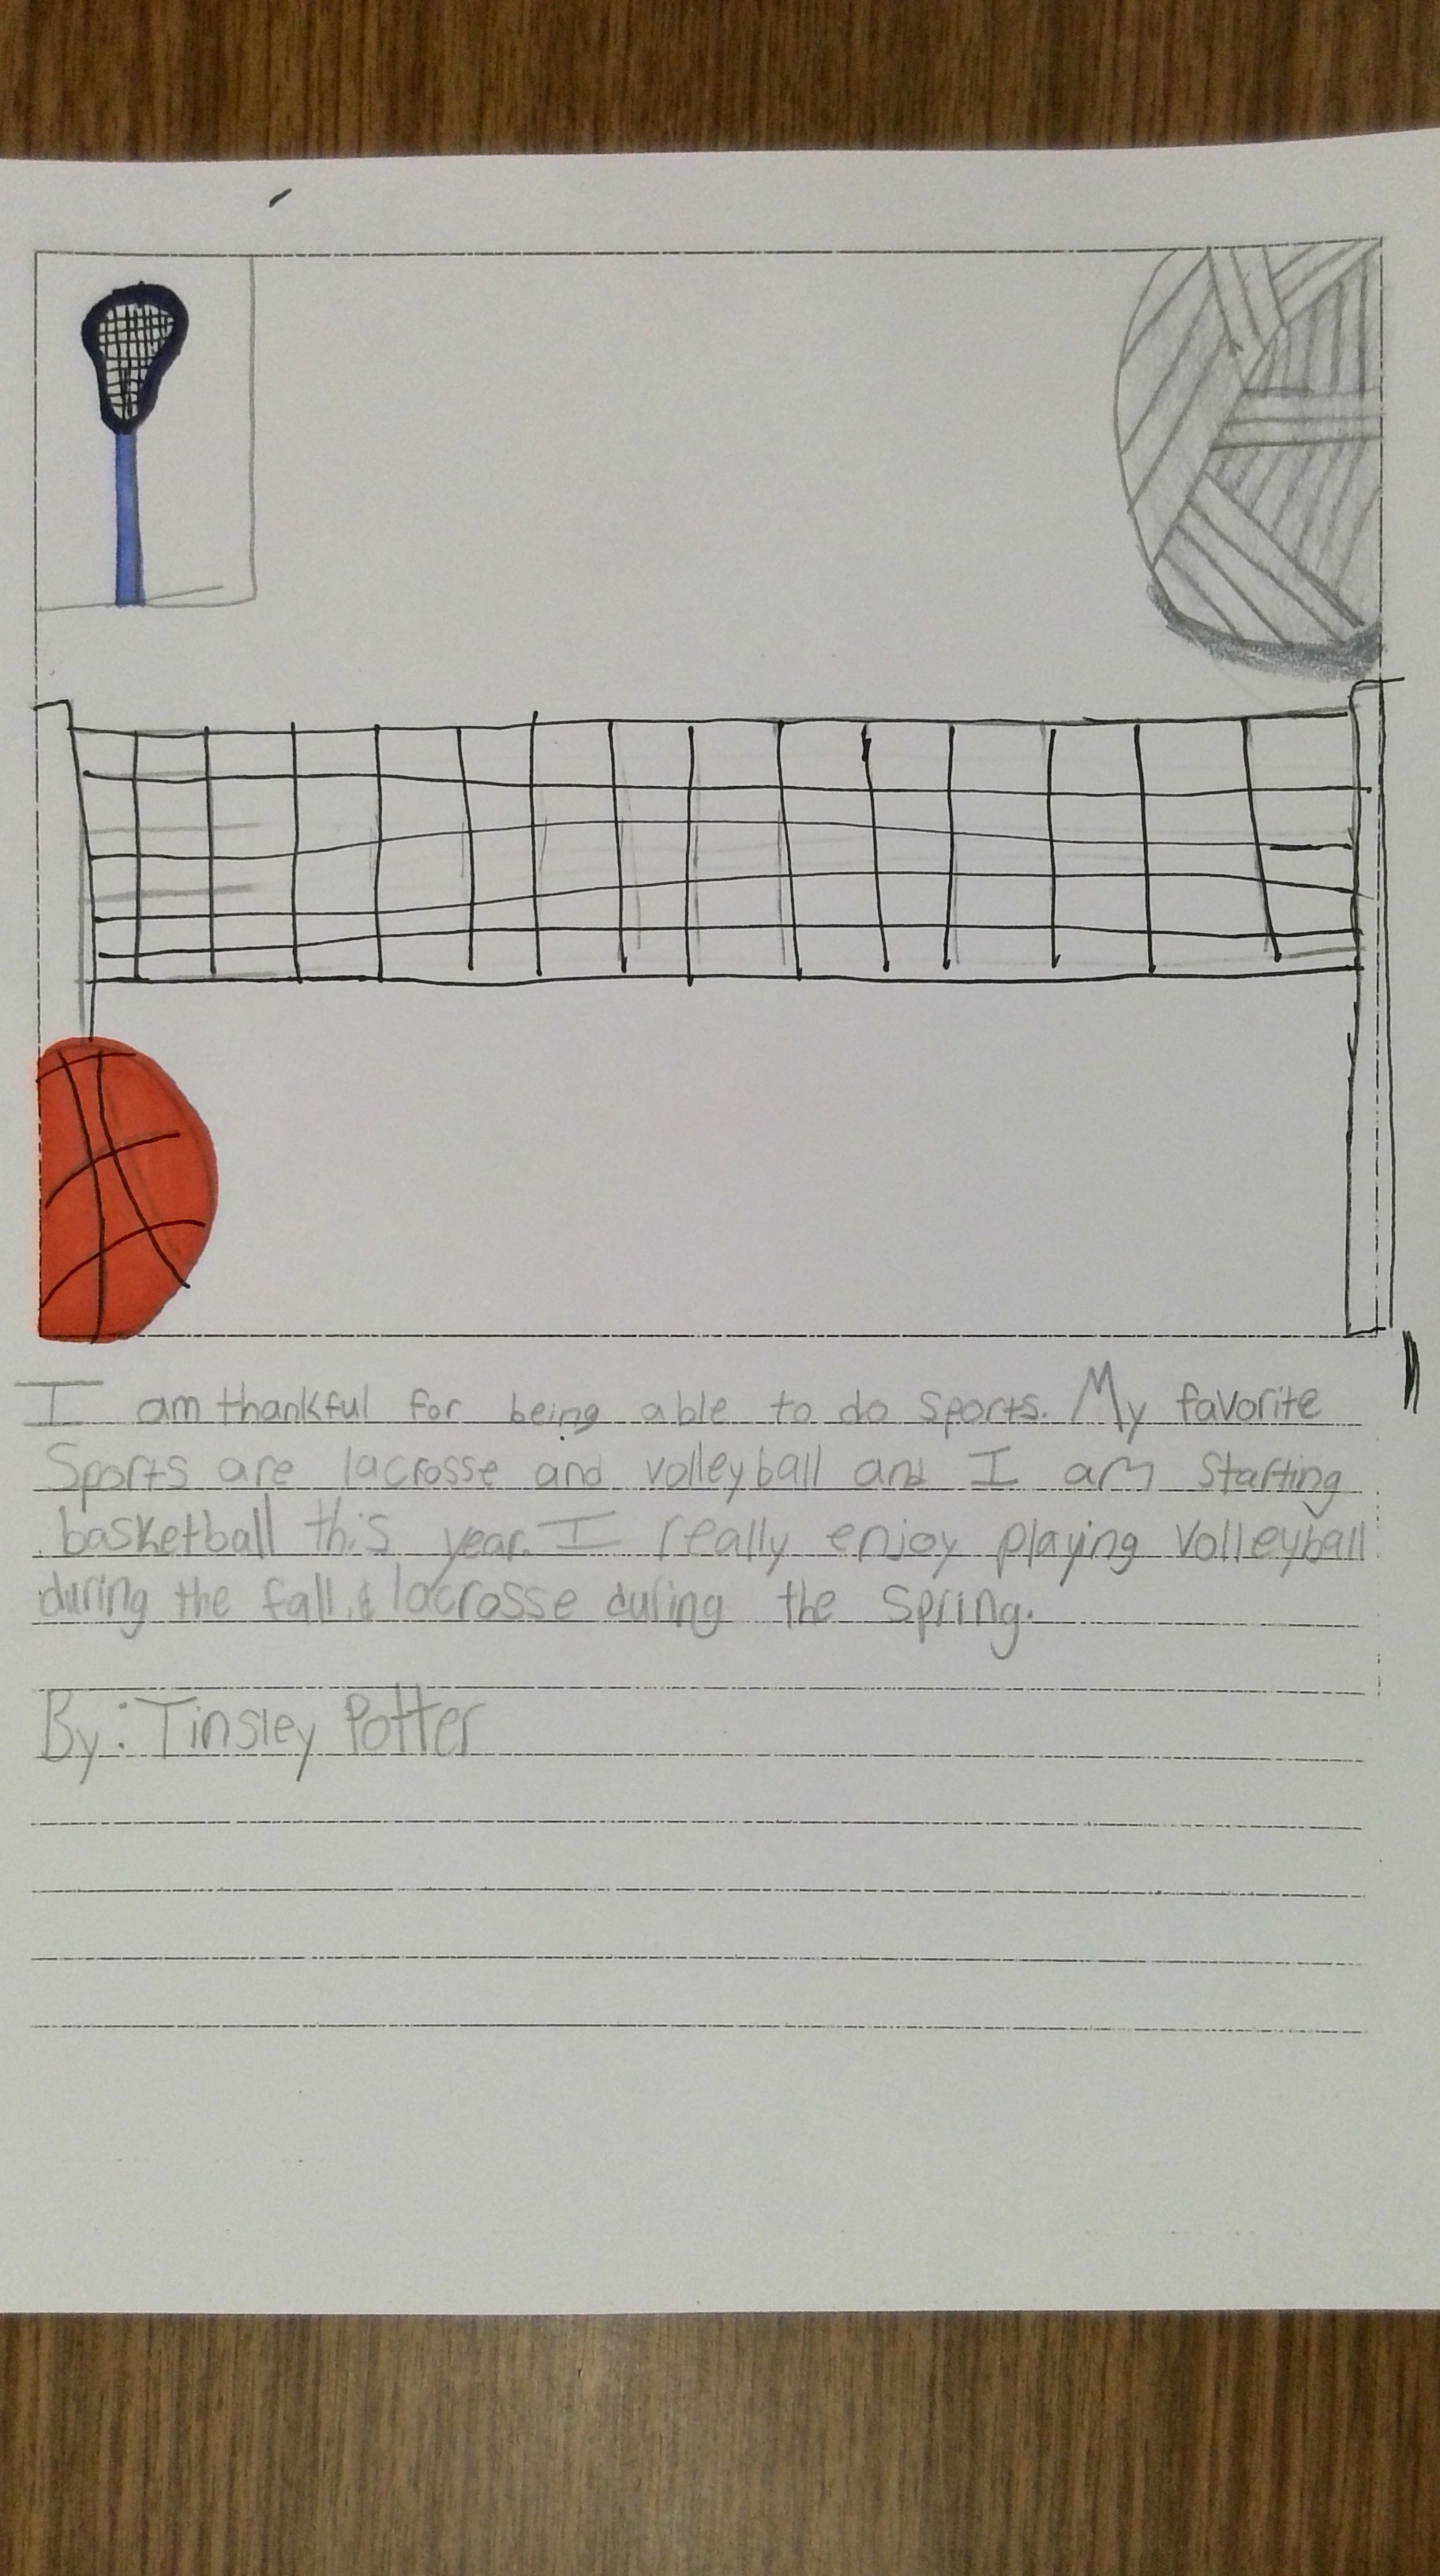 I am thankful for being able to do sports. My favorite
Sports are lacrosse and volleyball and I am starting
basketball this year. I really enjoy playing volleyball
during the fall & lacrosse during the spring.
By: Tinsley Potter